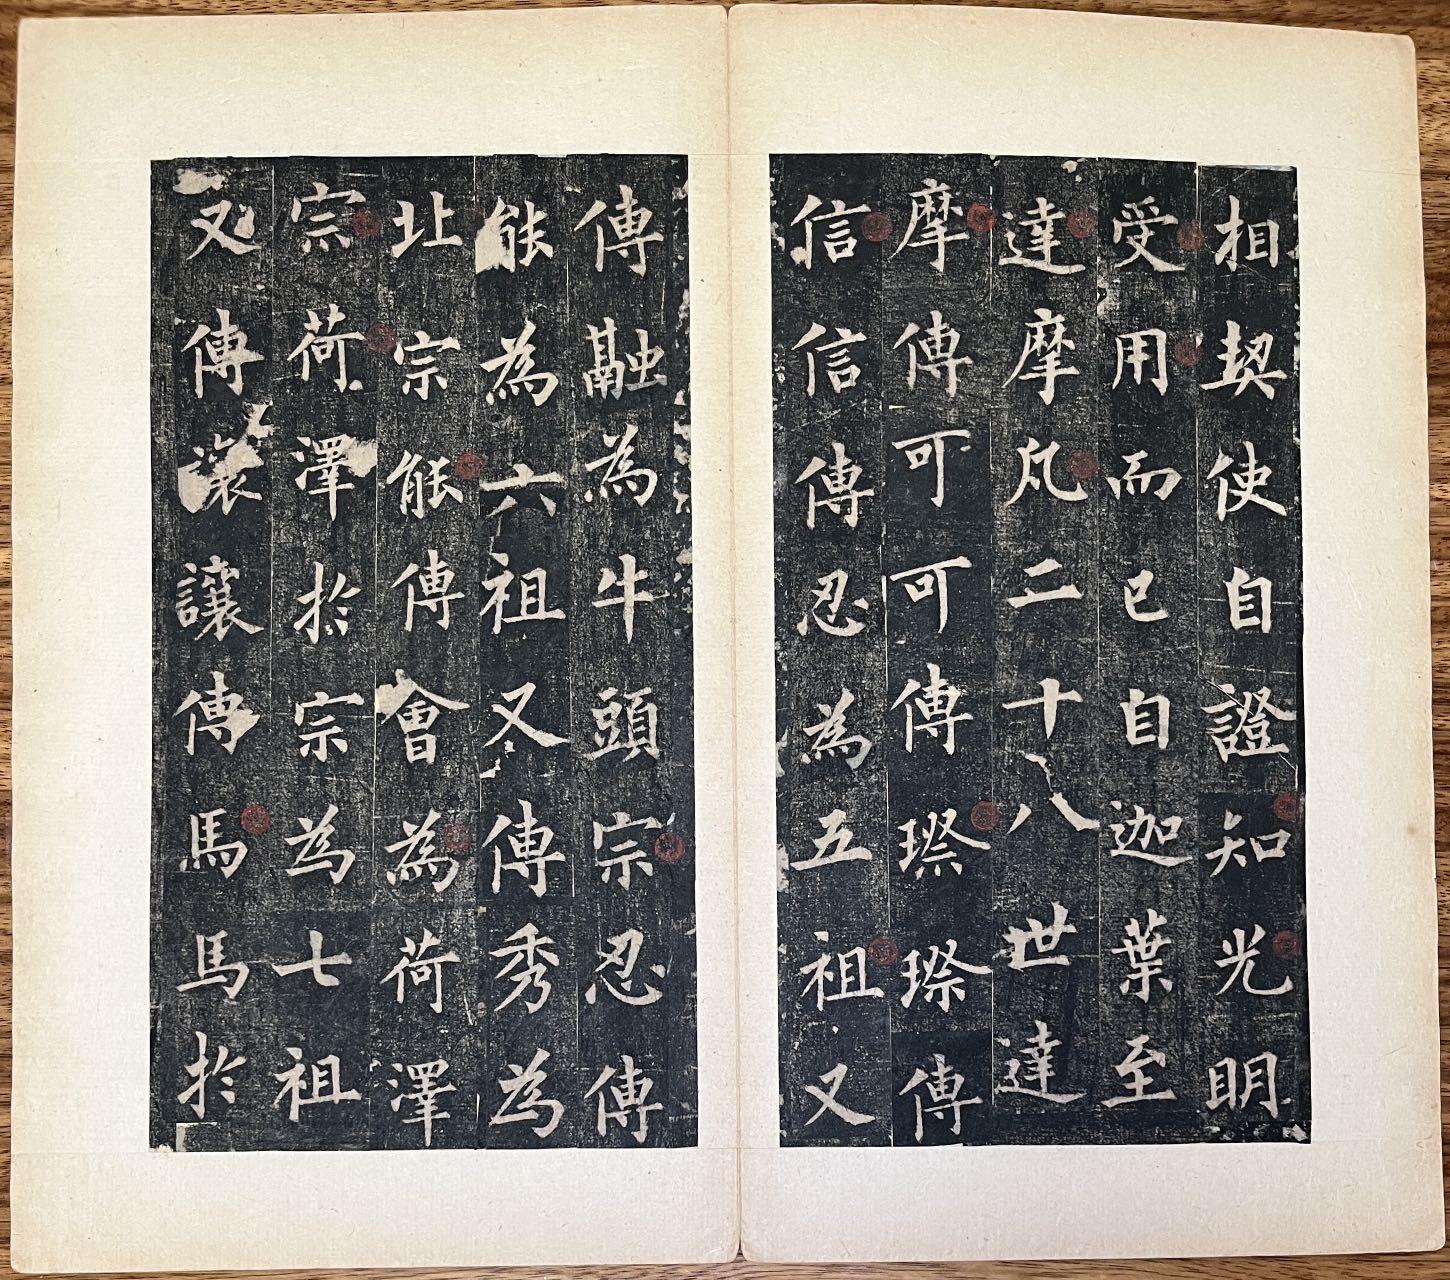 相契使自證知光明
受用而已自迦葉至
達摩凡二十八世達
摩傳可可傳璨璨傳
信信傳忍為五祖又
傳融為牛頭宗忍傳
能為六祖又傳秀為
北宗能傳會為荷澤
宗荷澤於宗為七祖
又傳讓讓傳馬馬於